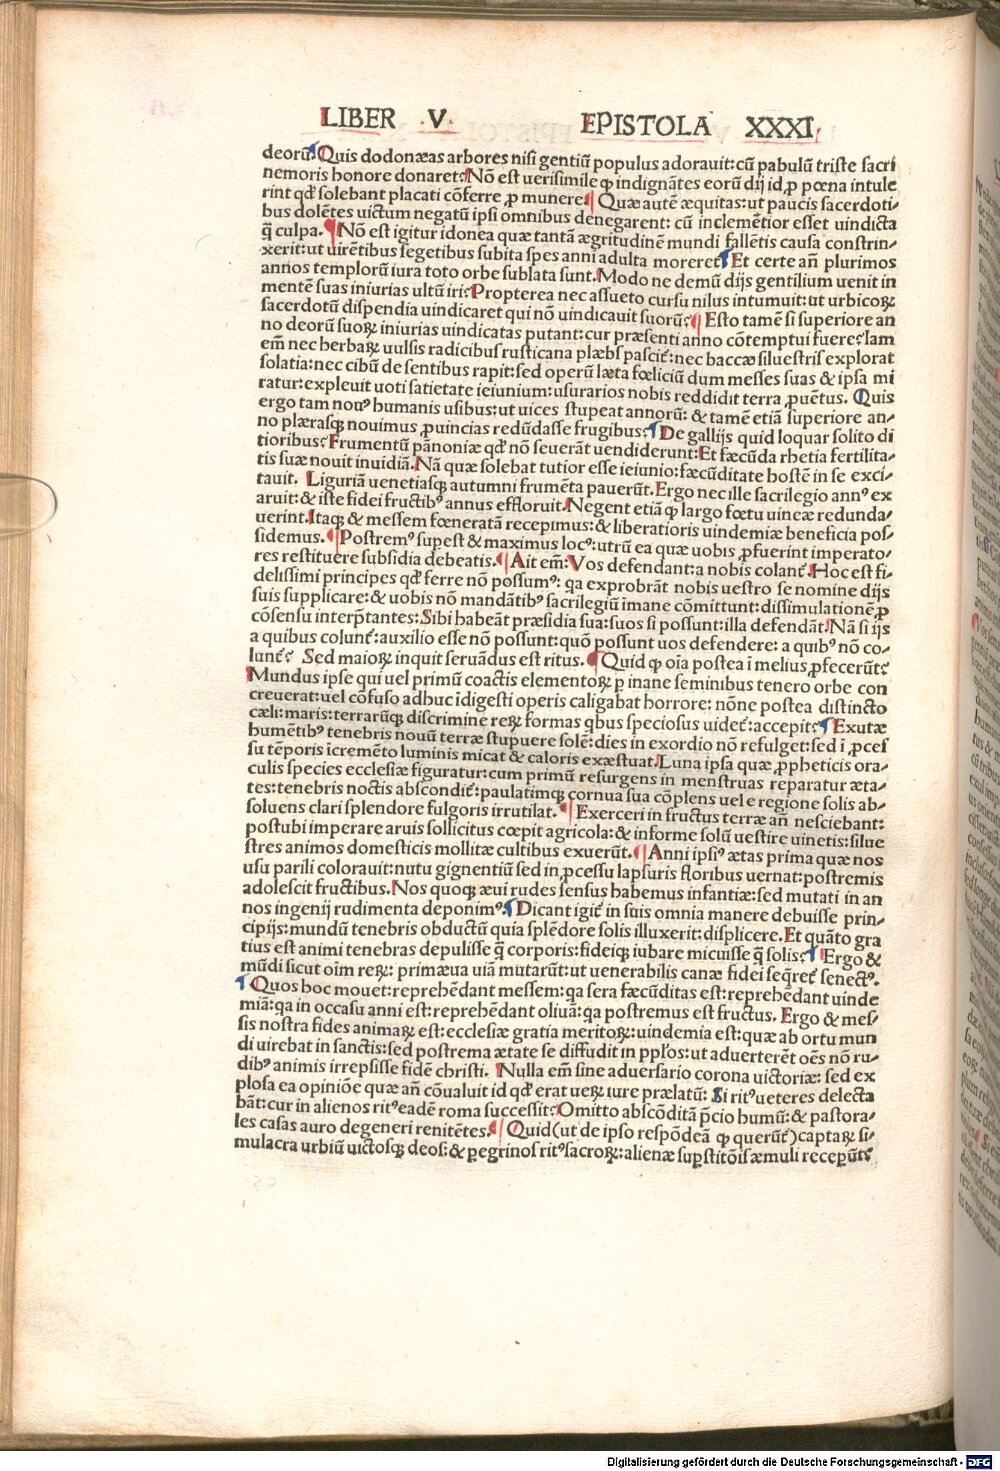 LIBER .V. EPISTOLA XXXI
deorū. Quis dodonæas arbores nisi gentiū populus adorauit: cū pabulū triste sacri
nemoris honore donaret? Nō est uerisimile ꝙ indignātes eorū dij id ꝓ pœna intule
rint qđ solebant placati cōferre ꝓ munere. ¶ Quæ autē æquitas: ut paucis sacerdoti-
bus dolētes uictum negatū ipsi omnibus denegarent: cū inclemētior esset uindicta
q̄ culpa. ¶ Nō est igitur idonea quæ tantā ægritudinē mundi fallētis causa constrin-
xerit: ut uirētibus segetibus subita spes anni adulta moreret̄ ¶ Et certe an̄ plurimos
annos templorū iura toto orbe sublata sunt. Modo ne demū dijs gentilium uenit in
mentē suas iniurias ultū iri? Propterea nec assueto cursu nilus intumuit: ut urbicoꝝ
sacerdotū dispendia uindicaret qui nō uindicauit suorū? ¶ Esto tamē si superiore an
no deorū suoꝝ iniurias uindicatas putant: cur præsenti anno cōtemptui fuere? Iam
em̄ nec herbaꝝ uulsis radicibus rusticana plæbs pascit̄: nec baccæ siluestris explorat
solatia: nec cibū de sentibus rapit: sed operū læta fœliciū dum messes suas & ipsa mi
ratur: expleuit uoti satietate ieiunium: usurarios nobis reddidit terra ꝓuētus. Quis
ergo tam nouꝰ humanis usibus: ut uices stupeat annorū: & tamē etiā superiore an-
no plærasqꝫ nouimus ꝓuincias redūdasse frugibus? ¶ De gallijs quid loquar solito di
tioribus? Frumentū pānoniæ qđ nō seuerāt uendiderunt: Et fæcūda rhetia fertilita-
tis suæ nouit inuidiā. Nā quæ solebat tutior esse ieiunio: fæcūditate hostē in se exci-
tauit. Liguriā uenetiasqꝫ autumni frumēta pauerūt. Ergo nec ille sacrilegio annꝰ ex
aruit: & iste fidei fructibꝰ annus effloruit. Negent etiā ꝙ largo fœtu uineæ redunda-
uerint. Itaqꝫ & messem fœneratā recepimus: & liberatioris uindemiæ beneficia pos-
sidemus. ¶ Postremꝰ supest & maximus locꝰ: utrū ea quæ uobis ꝓfuerint imperato-
res restituere subsidia debeatis. ¶ Ait em̄: Vos defendant: a nobis colant̄. Hoc est fi-
delissimi principes qđ ferre nō possumꝰ: qa exprobrāt nobis uestro se nomine dijs
suis supplicare: & uobis nō mandātibꝰ sacrilegiū imane cōmittunt: dissimulationē ꝓ
cōsensu interp̄tantes: Sibi habeāt præsidia sua: suos si possunt: illa defendāt. Nā si ijs
a quibus colunt̄: auxilio esse nō possunt: quō possunt uos defendere: a quibꝰ nō co-
lunt̄? Sed maioꝝ inquit seruādus est ritus. ¶ Quid ꝙ oīa postea ī melius ꝓfecerūt?
Mundus ipse qui uel primū coactis elementoꝝ ꝑ inane seminibus tenero orbe con
creuerat: uel cōfuso adhuc īdigesti operis caligabat horrore: nōne postea distincto
cæli: maris: terrarūqꝫ discrimine reꝝ formas qbus speciosus uidet̄: accepit? ¶ Exutæ
humētibꝰ tenebris nouū terræ stupuere solē: dies in exordio nō refulget: sed ī ꝓces
su tēporis īcremēto luminis micat & caloris exæstuat. Luna ipsa quæ ꝓpheticis ora-
culis species ecclesiæ figuratur: cum primū resurgens in menstruas reparatur æta-
tes: tenebris noctis abscondit̄: paulatimqꝫ cornua sua cōplens uel e regione solis ab-
soluens clari splendore fulgoris irrutilat. ¶ Exerceri in fructus terræ an̄ nesciebant:
postubi imperare aruis sollicitus cœpit agricola: & informe solū uestire uinetis: silue
stres animos domesticis mollitæ cultibus exuerūt. ¶ Anni ipsiꝰ ætas prima quæ nos
usu parili colorauit: nutu gignentiū sed in ꝓcessu lapsuris floribus uernat: postremis
adolescit fructibus. Nos quoqꝫ æui rudes sensus habemus infantiæ: sed mutati in an
nos ingenij rudimenta deponimꝰ. ¶ Dicant igit̄ in suis omnia manere debuisse prin-
cipijs: mundū tenebris obductū quia splēdore solis illuxerit: displicere. Et quāto gra
tius est animi tenebras depulisse q̄ corporis: fideiqꝫ iubare micuisse q̄ solis? ¶ Ergo &
mūdi sicut oīm reꝝ: primæua uiā mutarūt: ut uenerabilis canæ fidei seq̄ret̄ senectꝰ.
¶ Quos hoc mouet: reprehēdant messem: qa sera fæcūditas est: reprehēdant uinde
miā: qa in occasu anni est: reprehēdant oliuā: qa postremus est fructus. Ergo & mes-
sis nostra fides animaꝝ est: ecclesiæ gratia meritoꝝ: uindemia est: quæ ab ortu mun
di uirebat in sanctis: sed postrema ætate se diffudit in pp̄los: ut aduerterēt oēs nō ru-
dibꝰ animis irrepsisse fidē christi. Nulla em̄ sine aduersario corona uictoriæ: sed ex
plosa ea opiniōe quæ an̄ cōualuit id qđ erat ueꝝ: iure prælatū: Si ritꝰ ueteres delecta
bāt: cur in alienos ritꝰ eadē roma successit? Omitto abscōditā p̄cio humū: & pastora-
les casas auro degeneri renitētes. ¶ Quid (ut de ipso respōdeā ꝙ querūt̄) captaꝝ si-
mulacra urbiū uictosqꝫ deos: & ꝑegrinos ritꝰ sacroꝝ: alienæ suꝑstitōis æmuli receꝑūt?
Digitalisierung gefördert durch die Deutsche Forschungsgemeinschaft - DFG